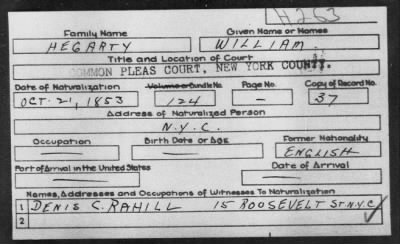 H263
Family Name Given Name or Names
HEGARTY WILLIAM
Title and Location of Court
COMMON PLEAS COURT, NEW YORK COUNTY.
Date of Naturalization Volume or Bundle No. Page No. Copy of Record No.
OCT. 21, 1853 124 — 37
Address of Naturalized Person
N.Y.C.
Occupation Birth Date or Age Former Nationality
— — ENGLISH
Port of Arrival in the United States Date of Arrival
— —
Names, Addresses and Occupations of Witnesses To Naturalization
1 DENIS C. RAHILL 15 ROOSEVELT ST N.Y.C.
2